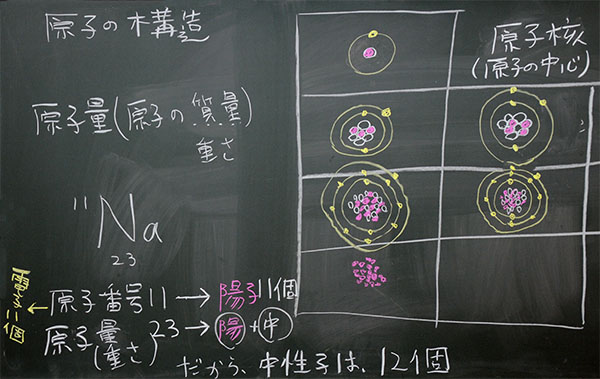 原子の構造
原子核
(原子の中心)
原子量(原子の質量)
重さ
11
Na
23
電子11個
← 原子番号11 → 陽子11個
原子量23 → 陽+中
(重さ)
だから、中性子は、12個